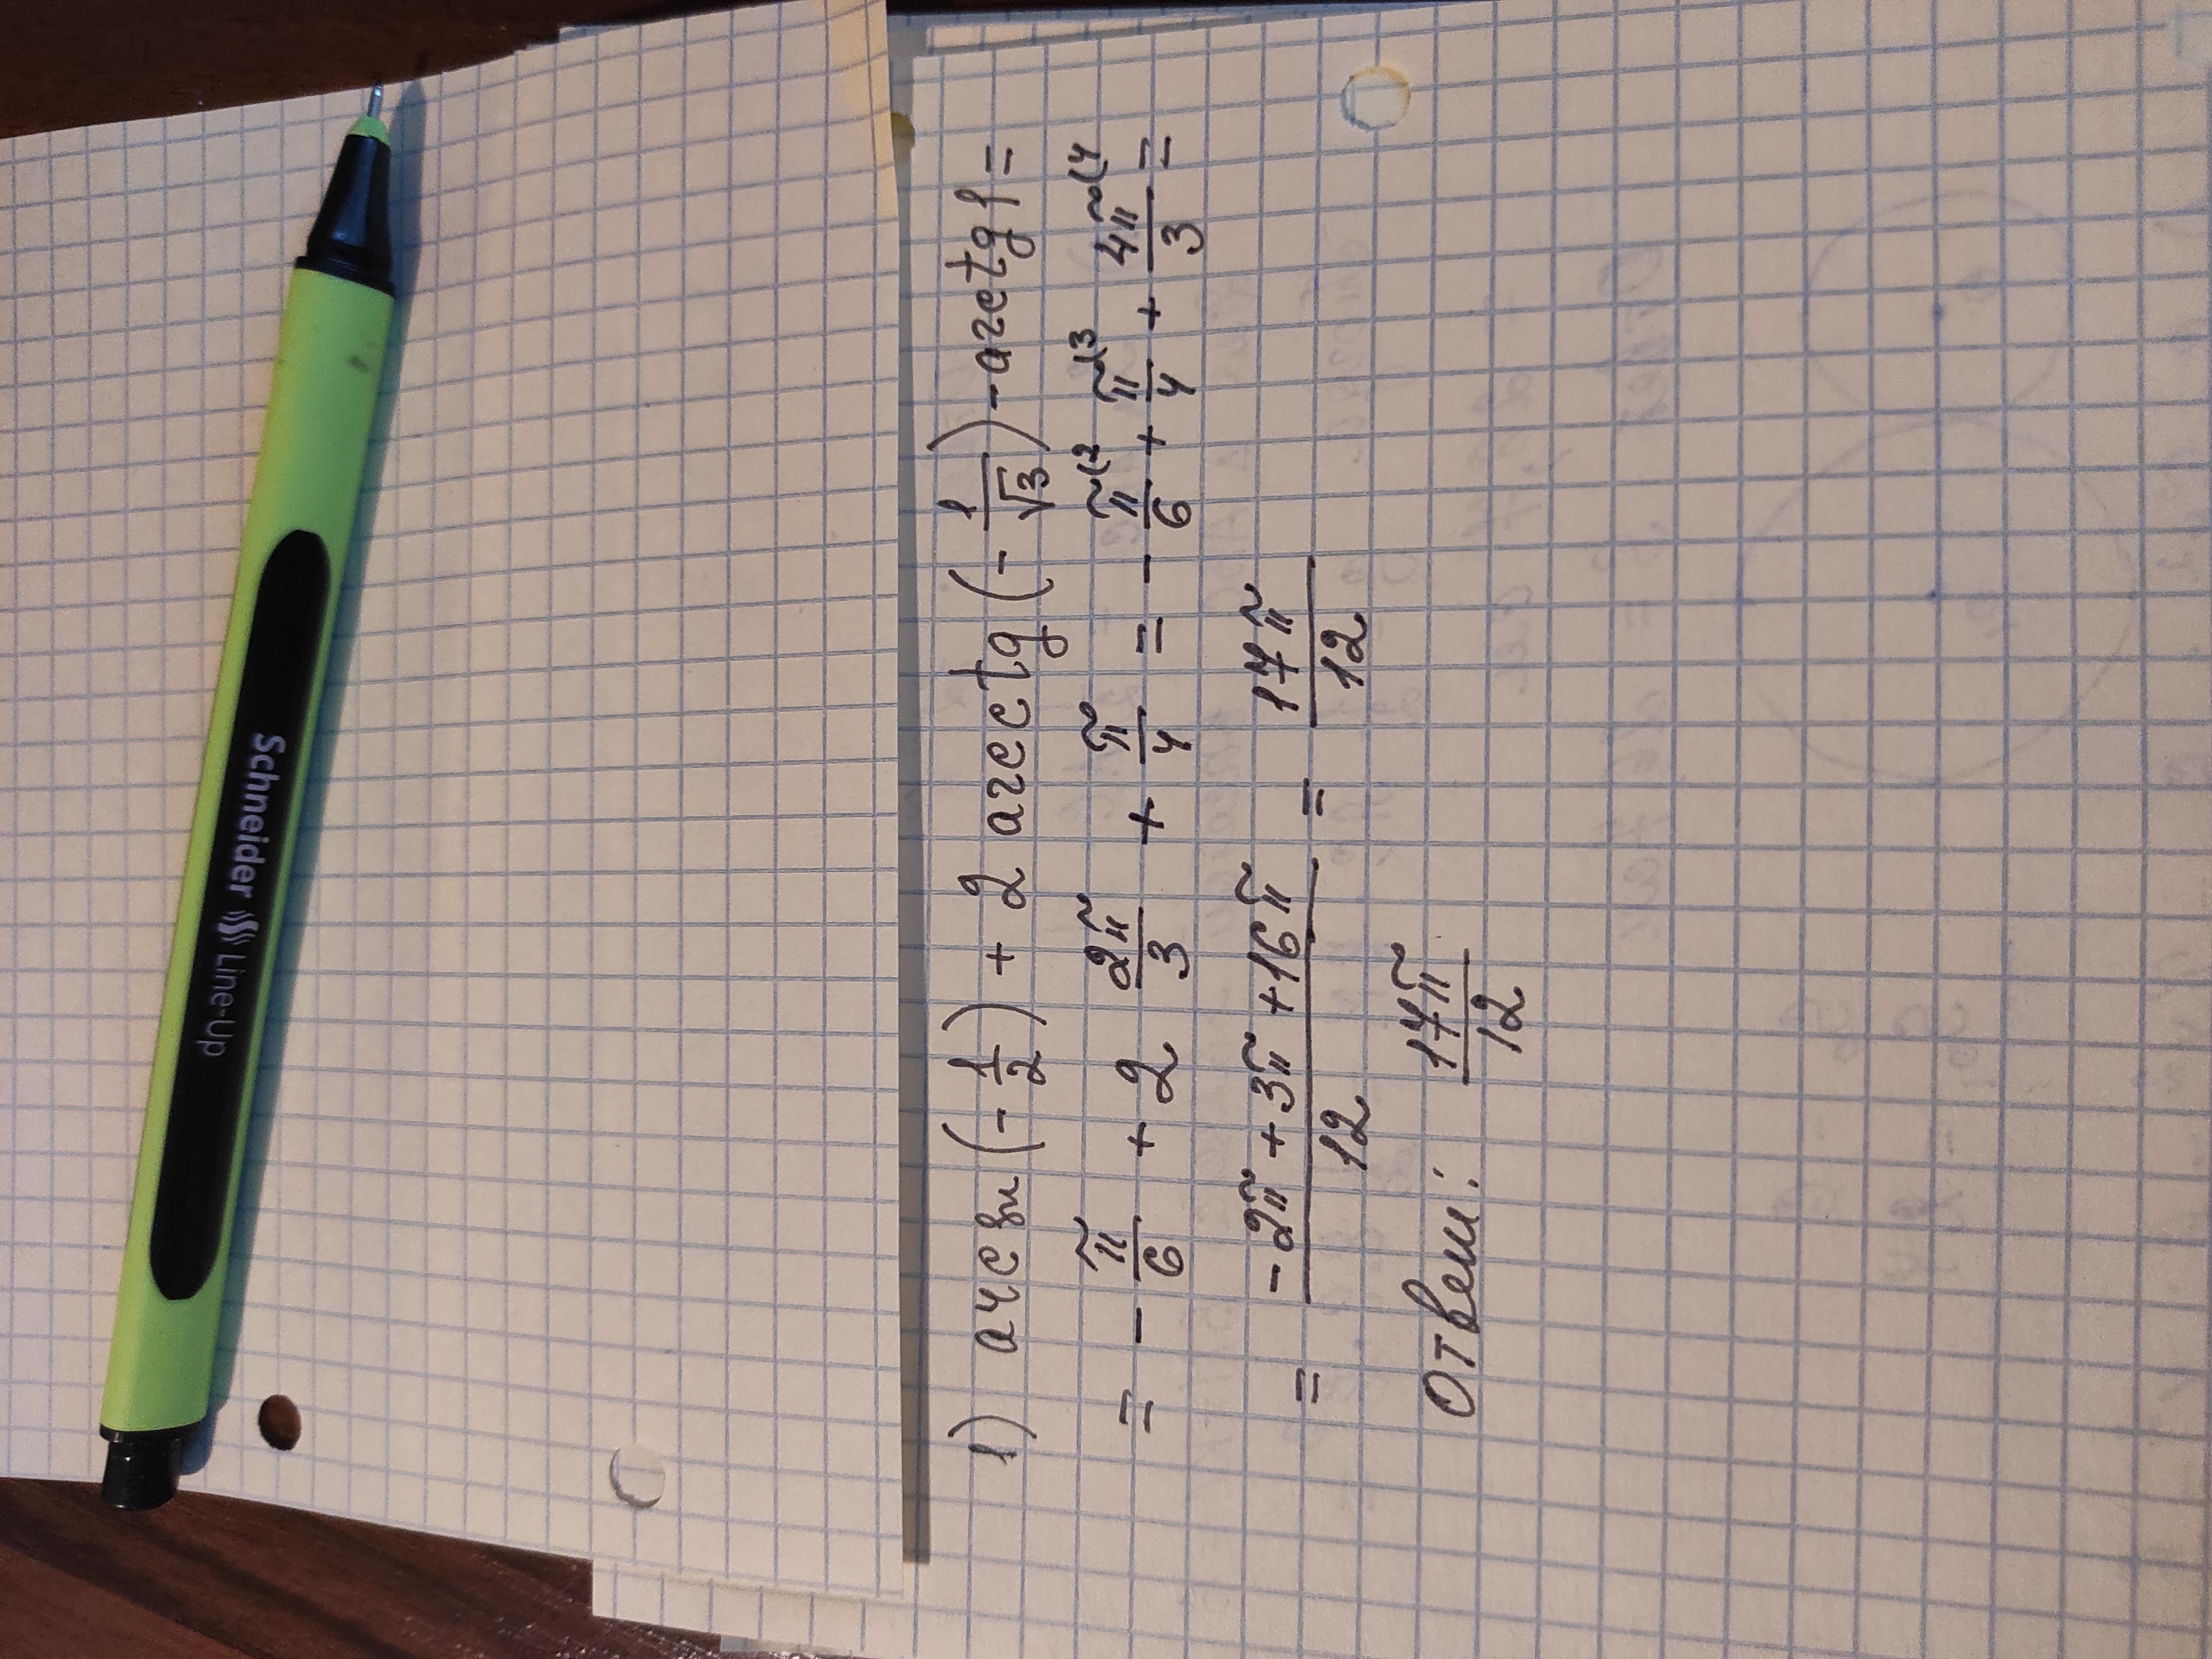 1) arcsin (- 1/2) + 2 arcctg (- 1/√3) - arctg 1 =
= - π/6 + 2 2π/3 + π/4 = - π(2/6 + π(3/4 + 4π(4/3 =
= -2π + 3π + 16π/12 = 17π/12
Ответ: 17π/12
Schneider Line-Up